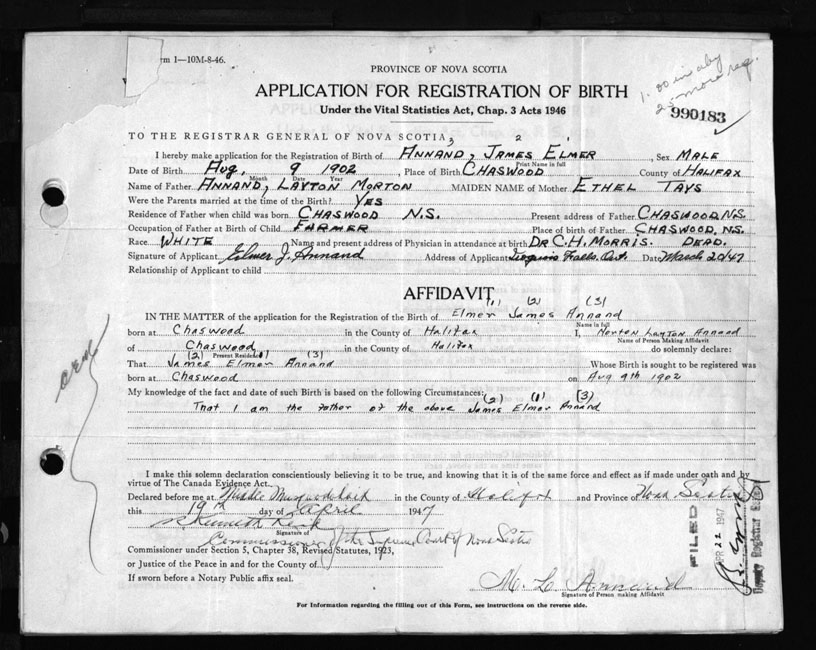 rm 1—10M-8-46.
PROVINCE OF NOVA SCOTIA
APPLICATION FOR REGISTRATION OF BIRTH
Under the Vital Statistics Act, Chap. 3 Acts 1946
1.00 in
990183
TO THE REGISTRAR GENERAL OF NOVA SCOTIA,
I hereby make application for the Registration of Birth of ANNAND, JAMES ELMER, Sex MALE
Print Name in full
Date of Birth Aug, 9 1902, Place of Birth CHASWOOD County of HALIFAX
Month Date Year
Name of Father ANNAND, LAYTON MORTON MAIDEN NAME of Mother ETHEL TAYS
Were the Parents married at the time of the Birth? YES
Residence of Father when child was born CHASWOOD N.S. Present address of Father CHASWOOD, N.S.
Occupation of Father at Birth of Child FARMER Place of birth of Father CHASWOOD, N.S.
Race WHITE Name and present address of Physician in attendance at birth DR C.H. MORRIS. DEAD.
Signature of Applicant Elmer J. Annand Address of Applicant Iroquois Falls. Ont. Date March 20/47
Relationship of Applicant to child
AFFIDAVIT
(1) (2) (3)
IN THE MATTER of the application for the Registration of Birth of Elmer James Annand
Name in full
born at Chaswood in the County of Halifax I, Morton Layton Annand
Name of Person Making Affidavit
of Chaswood in the County of Halifax do solemnly declare:
(2) Present Residence (1) (3)
That James Elmer Annand Whose Birth is sought to be registered was
born at Chaswood on Aug 9th 1902
My knowledge of the fact and date of such Birth is based on the following Circumstances:
(2) (1) (3)
That I am the Father of the above James Elmer Annand
I make this solemn declaration conscientiously believing it to be true, and knowing that it is of the same force and effect as if made under oath and by
virtue of The Canada Evidence Act.
Declared before me at Middle Musquodoboit in the County of Halifax and Province of Nova Scotia
this 19th day of April 1947
Signature of
Commissioner of the Supreme Court of Nova Scotia
Commissioner under Section 5, Chapter 38, Revised Statutes, 1923,
or Justice of the Peace in and for the County of
If sworn before a Notary Public affix seal.
M. L. Annand
Signature of Person making Affidavit
For Information regarding the filling out of this Form, see instructions on the reverse side.
FILED
APR 22 1947
Deputy Registrar